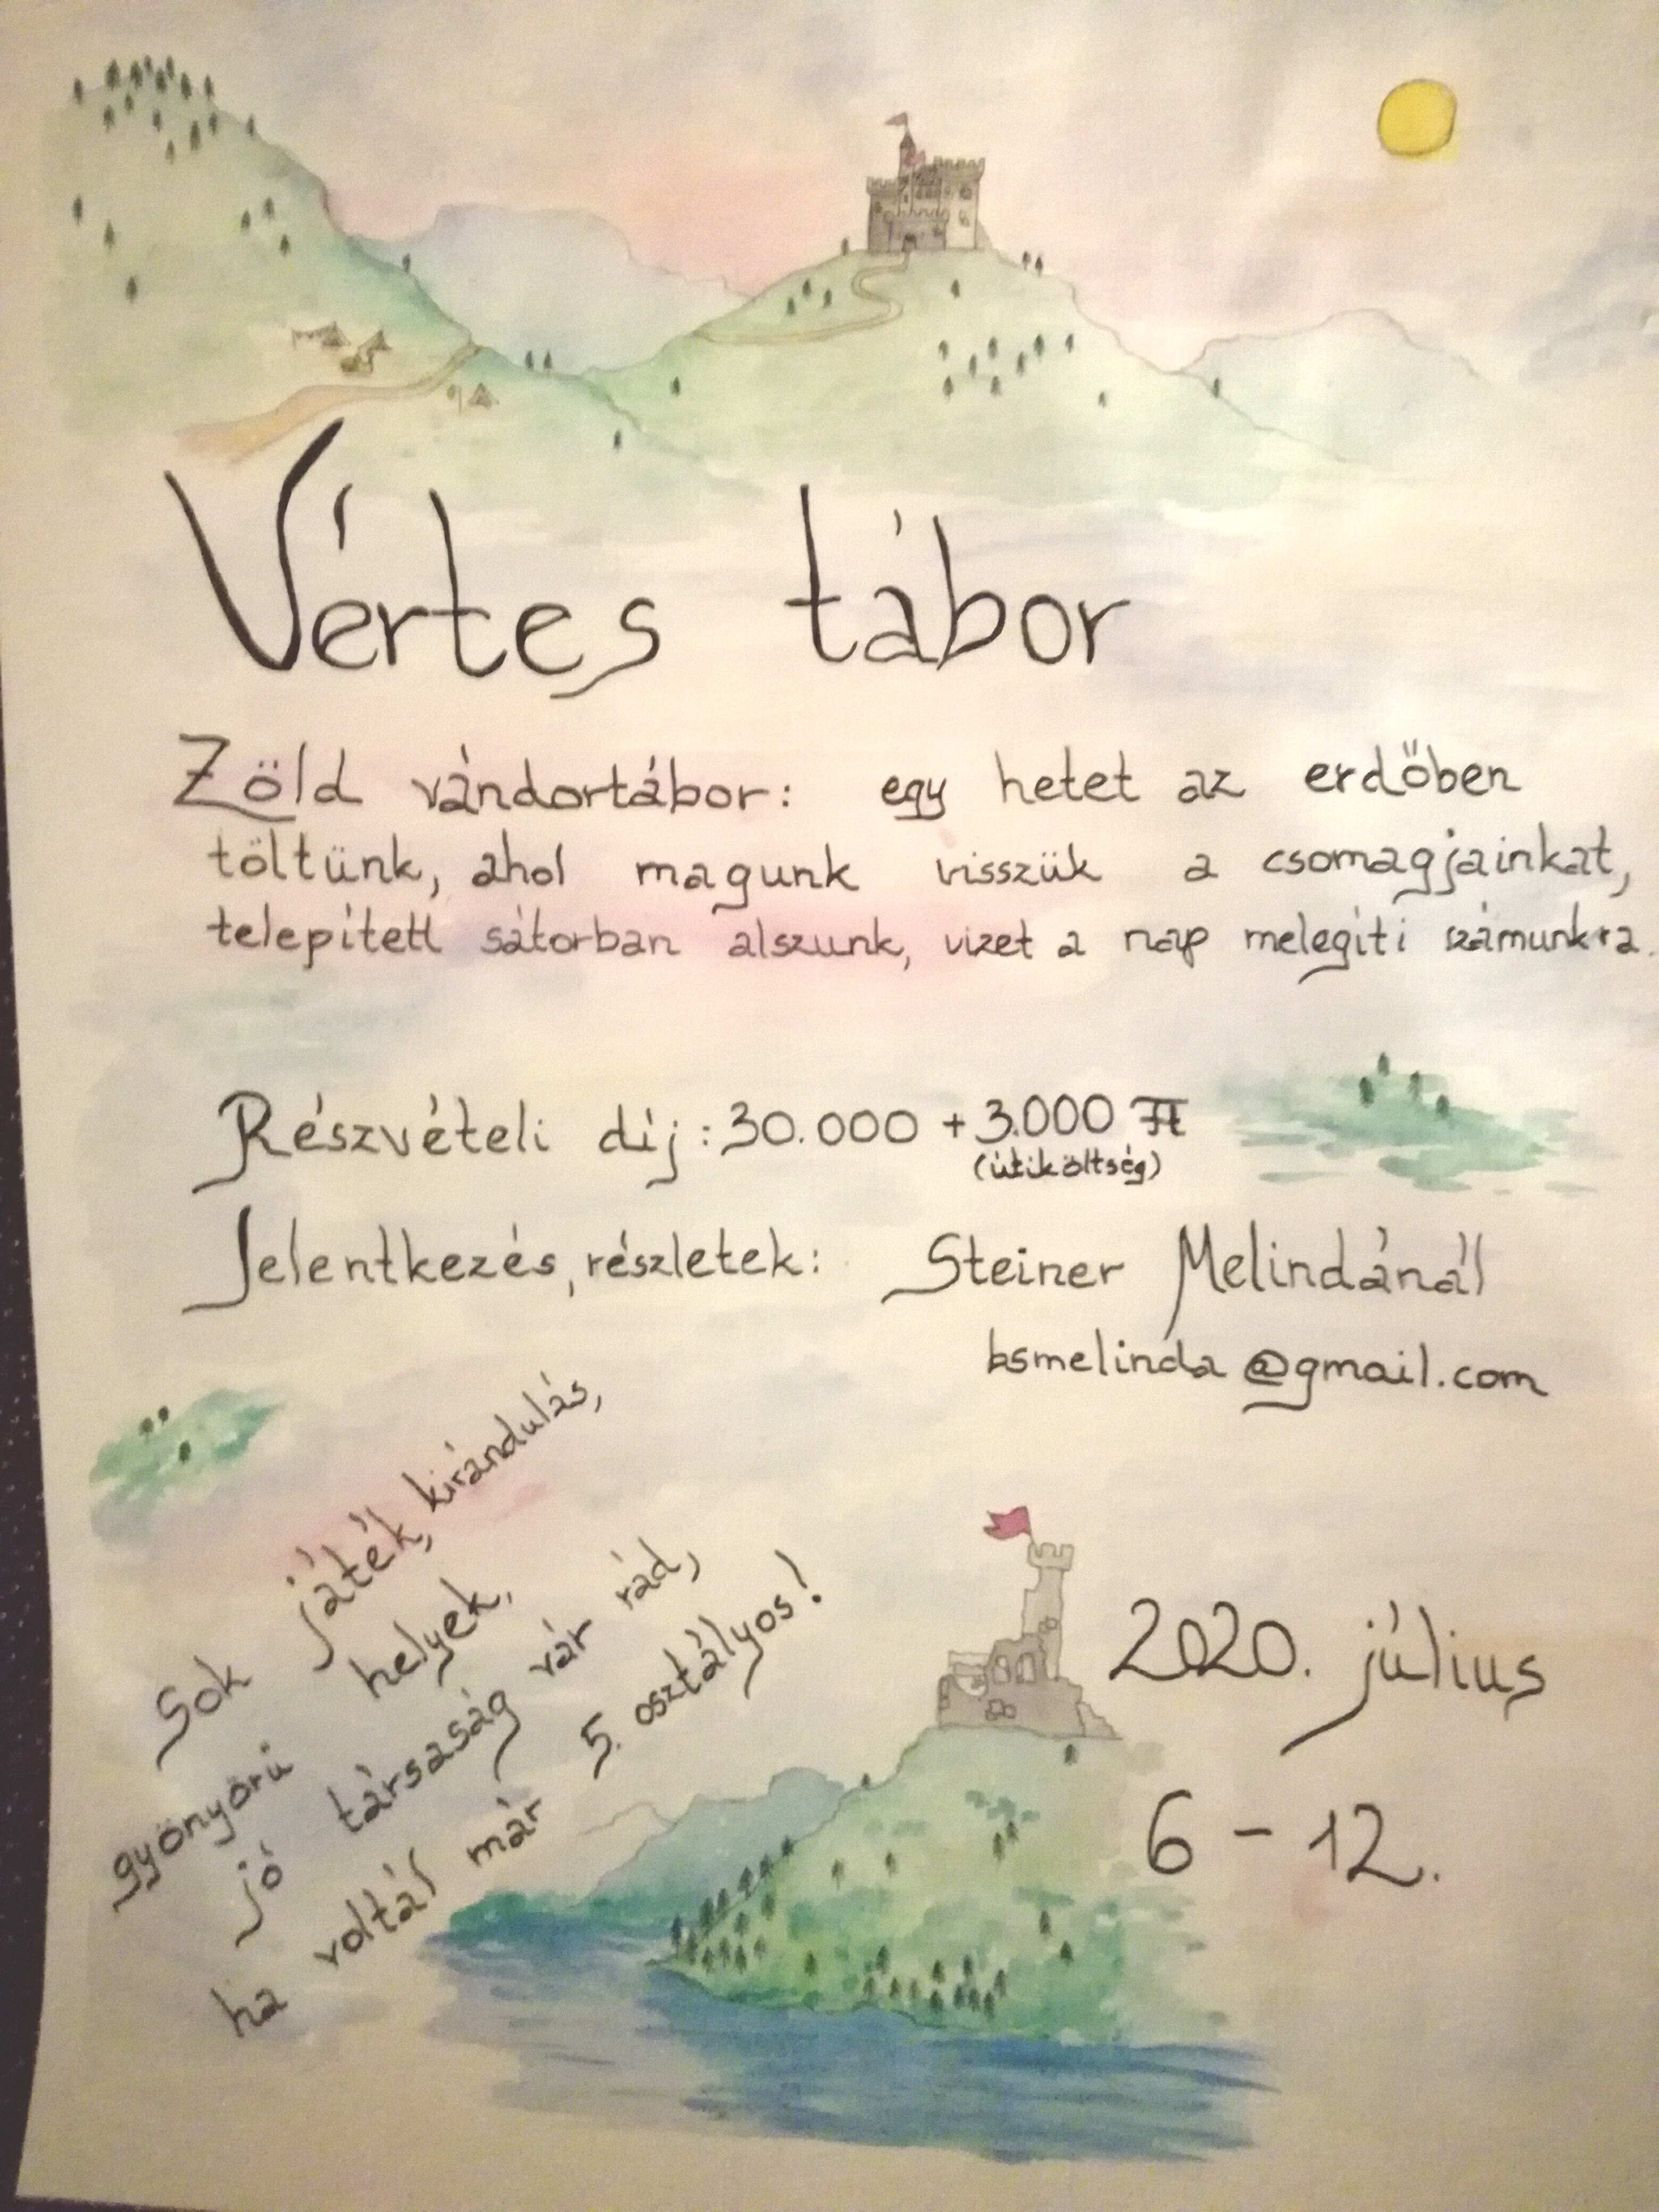 Vértes tábor
Zöld vándortábor: egy hetet az erdőben
töltünk, ahol magunk visszük a csomagjainkat,
telepített sátorban alszunk, vizet a nap melegíti számunkra.
Részvételi díj: 30.000 + 3.000 Ft
(útiköltség)
Jelentkezés, részletek: Steiner Melindánál
bsmelinda@gmail.com
Sok játék, kirándulás,
gyönyörű helyek,
jó társaság vár rád,
ha voltál már 5. osztályos!
2020. július
6 - 12.